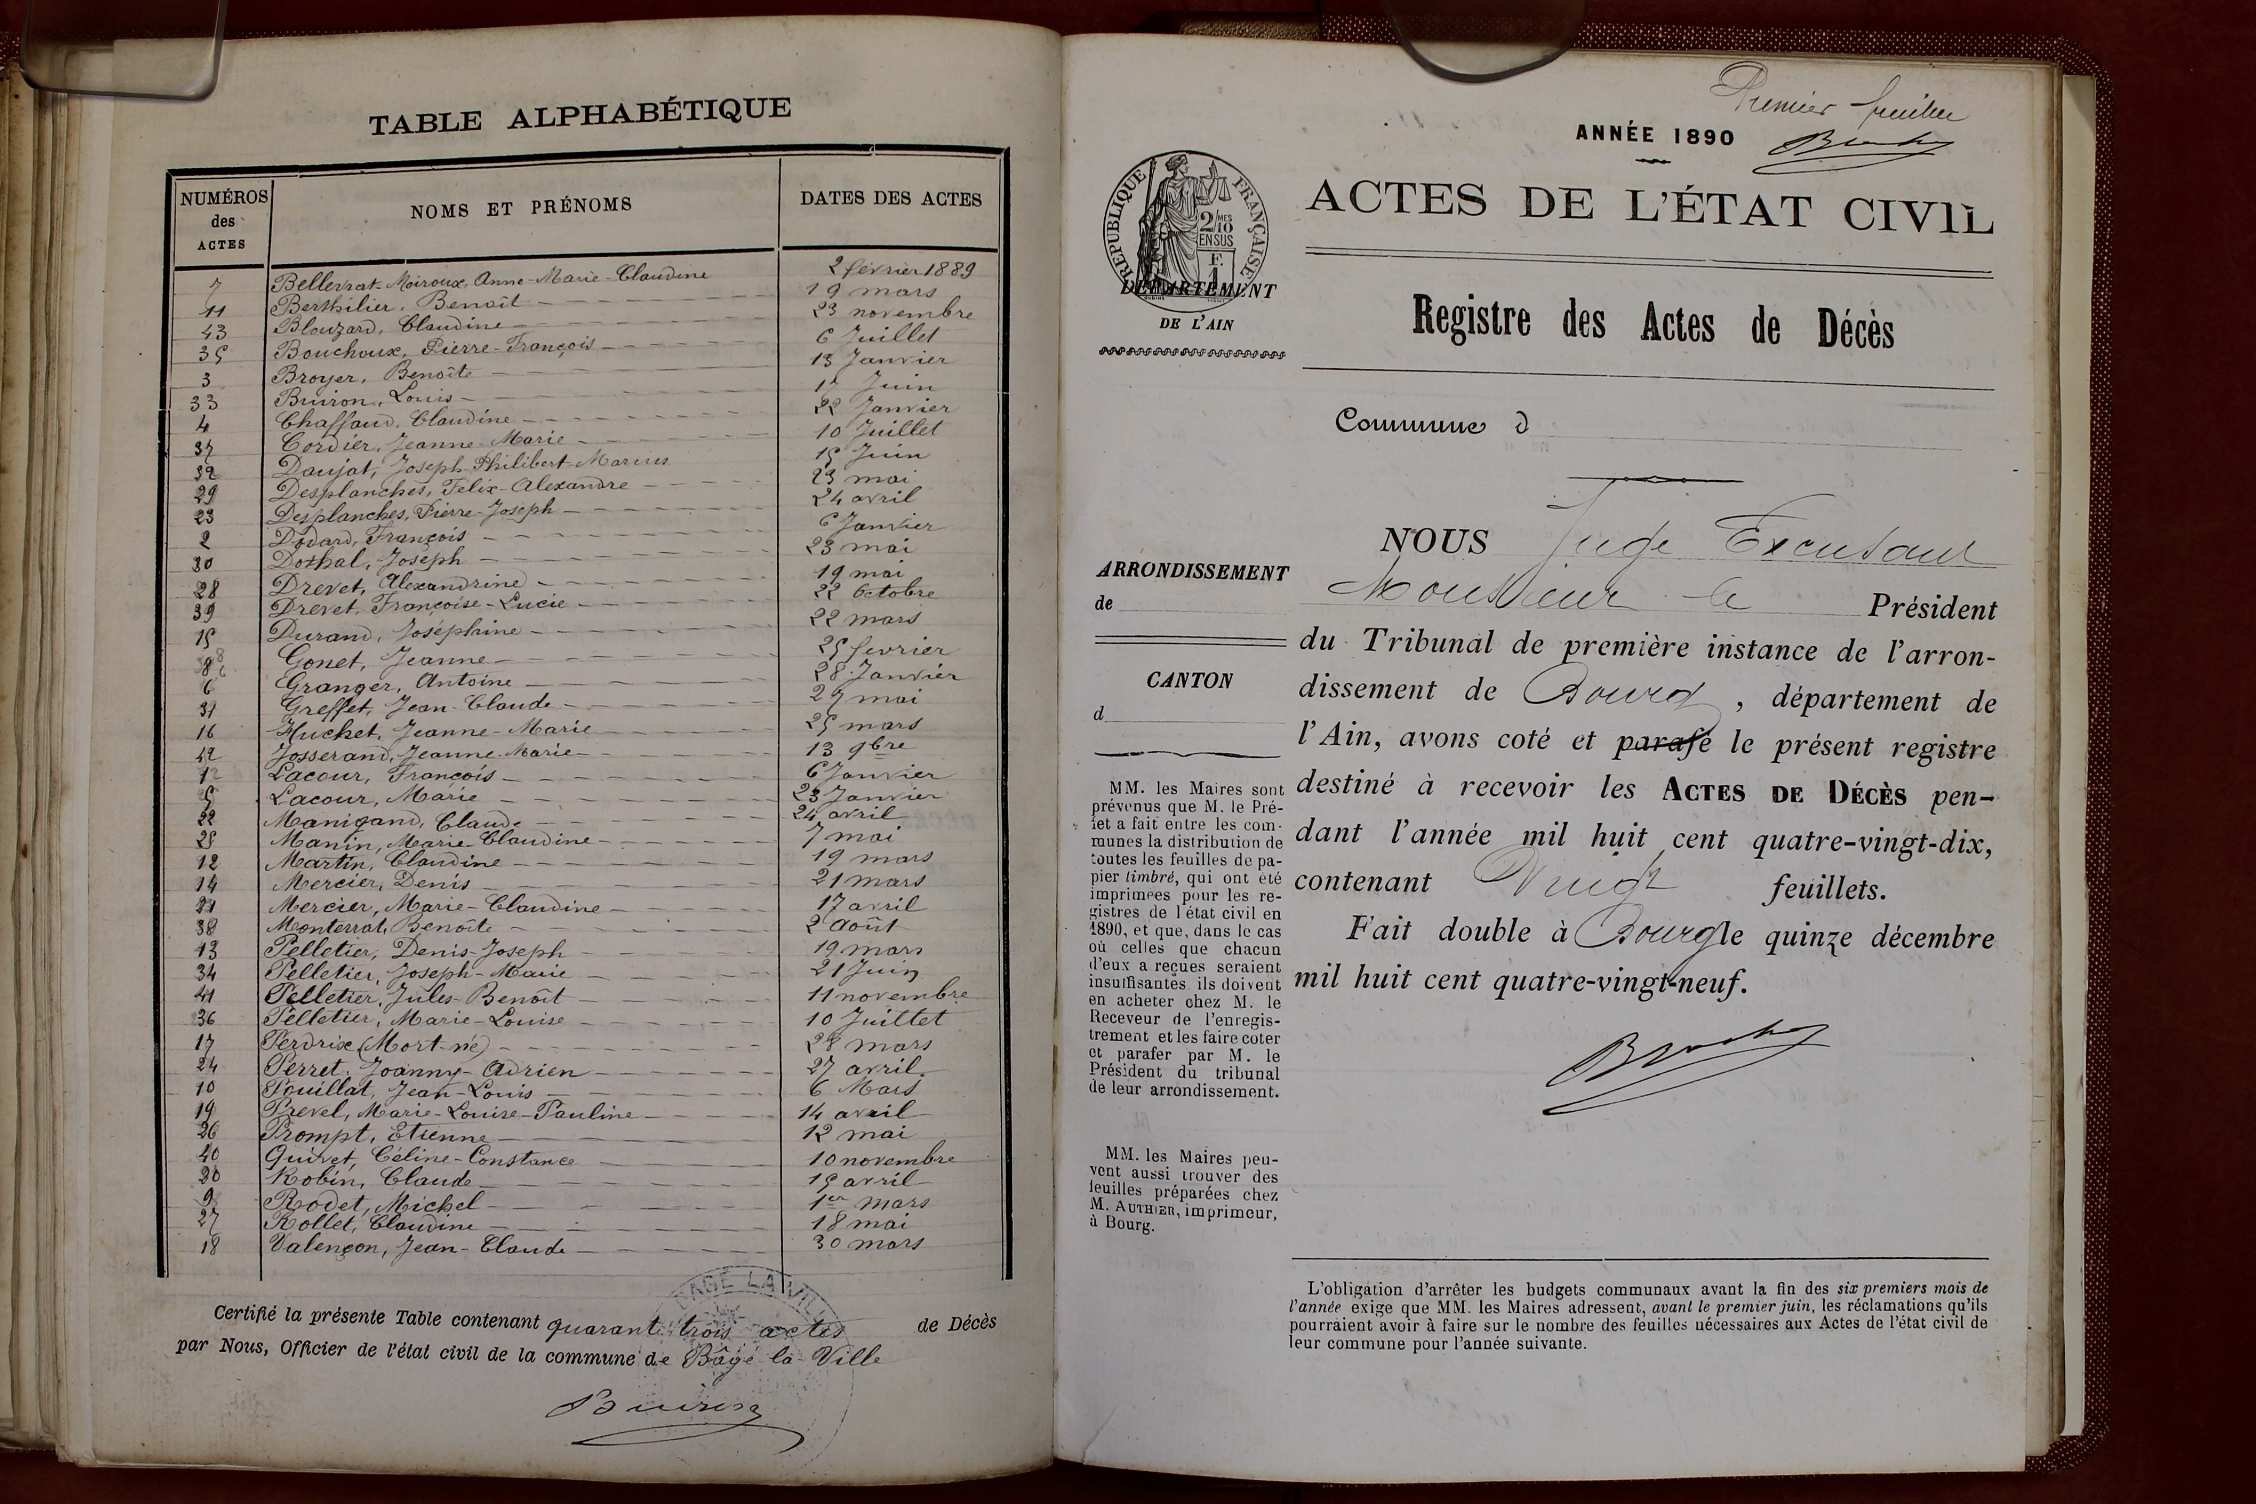 TABLE ALPHABÉTIQUE
NUMÉROS des ACTES NOMS ET PRÉNOMS DATES DES ACTES
7 Bellerrat-Moiroux, Anne-Marie-Claudine 2 février 1889
11 Berthilier, Benoît 19 mars
43 Blouzard, Claudine 23 novembre
35 Bouchoux, Pierre-François 6 Juillet
3 Broyer, Benoîte 13 Janvier
33 Buiron, Louis 17 Juin
4 Chaffaud, Claudine 22 Janvier
37 Cordier, Jeanne-Marie 10 Juillet
32 Daujat, Joseph-Philibert-Marius 15 Juin
29 Desplanches, Felix-Alexandre 23 mai
23 Desplanches, Pierre-Joseph 24 avril
2 Dodard, François 6 Janvier
30 Dothal, Joseph 23 mai
28 Drevet, Alexandrine 19 mai
39 Drevet, Françoise-Lucie 22 Octobre
15 Durand, Joséphine 22 mars
8 Gonet, Jeanne 25 fevrier
6 Granger, Antoine 28 Janvier
31 Greffet, Jean-Claude 29 mai
16 Huchet, Jeanne-Marie 25 mars
42 Josserand, Jeanne-Marie 13 9bre
1 Lacour, François 6 Janvier
5 Lacour, Marie 23 Janvier
22 Manigand, Claude 24 avril
25 Manin, Marie-Claudine 7 mai
12 Martin, Claudine 19 mars
14 Mercier, Denis 21 mars
21 Mercier, Marie-Claudine 17 avril
38 Monterrat, Benoîte 2 Août
13 Pelletier, Denis-Joseph 19 mars
34 Pelletier, Joseph-Marie 21 Juin
41 Pelletier, Jules-Benoît 11 novembre
36 Pelletier, Marie-Louise 10 Juillet
17 Perdrix (Mort-né) 28 mars
24 Perret, Joanny-Adrien 27 avril
10 Pouillat, Jean-Louis 6 Mars
19 Prevel, Marie-Louise-Pauline 14 avril
26 Prompt, Etienne 12 mai
40 Quivet, Céline-Constance 10 novembre
20 Robin, Claude 15 avril
9 Rodet, Michel 1er mars
27 Rollet, Claudine 18 mai
18 Valençon, Jean-Claude 30 mars
Certifié la présente Table contenant quarante trois actes de Décès
par Nous, Officier de l'état civil de la commune de Bâgé la Ville
BAGÉ LA VILLE
Buiron
Premier feuillet
ANNÉE 1890
RÉPUBLIQUE FRANÇAISE
2/10 MES
EN SUS
F. 1
ACTES DE L'ÉTAT CIVIL
DÉPARTEMENT
DE L'AIN
Registre des Actes de Décès
Commune d
ARRONDISSEMENT
de
CANTON
d
MM. les Maires sont
prévenus que M. le Pré-
fet a fait entre les com-
munes la distribution de
toutes les feuilles de pa-
pier timbré, qui ont été
imprimées pour les re-
gistres de l'état civil en
1890, et que, dans le cas
où celles que chacun
d'eux a reçues seraient
insuffisantes ils doivent
en acheter chez M. le
Receveur de l'enregis-
trement et les faire coter
et parafer par M. le
Président du tribunal
de leur arrondissement.
MM. les Maires peu-
vent aussi trouver des
feuilles préparées chez
M. AUTHIER, imprimeur,
à Bourg.
NOUS Juge Excusant
Monsieur le Président
du Tribunal de première instance de l'arron-
dissement de Bourg, département de
l'Ain, avons coté et parafé le présent registre
destiné à recevoir les ACTES DE DÉCÈS pen-
dant l'année mil huit cent quatre-vingt-dix,
contenant Vingt feuillets.
Fait double à Bourg le quinze décembre
mil huit cent quatre-vingt-neuf.
L'obligation d'arrêter les budgets communaux avant la fin des six premiers mois de
l'année exige que MM. les Maires adressent, avant le premier juin, les réclamations qu'ils
pourraient avoir à faire sur le nombre des feuilles nécessaires aux Actes de l'état civil de
leur commune pour l'année suivante.